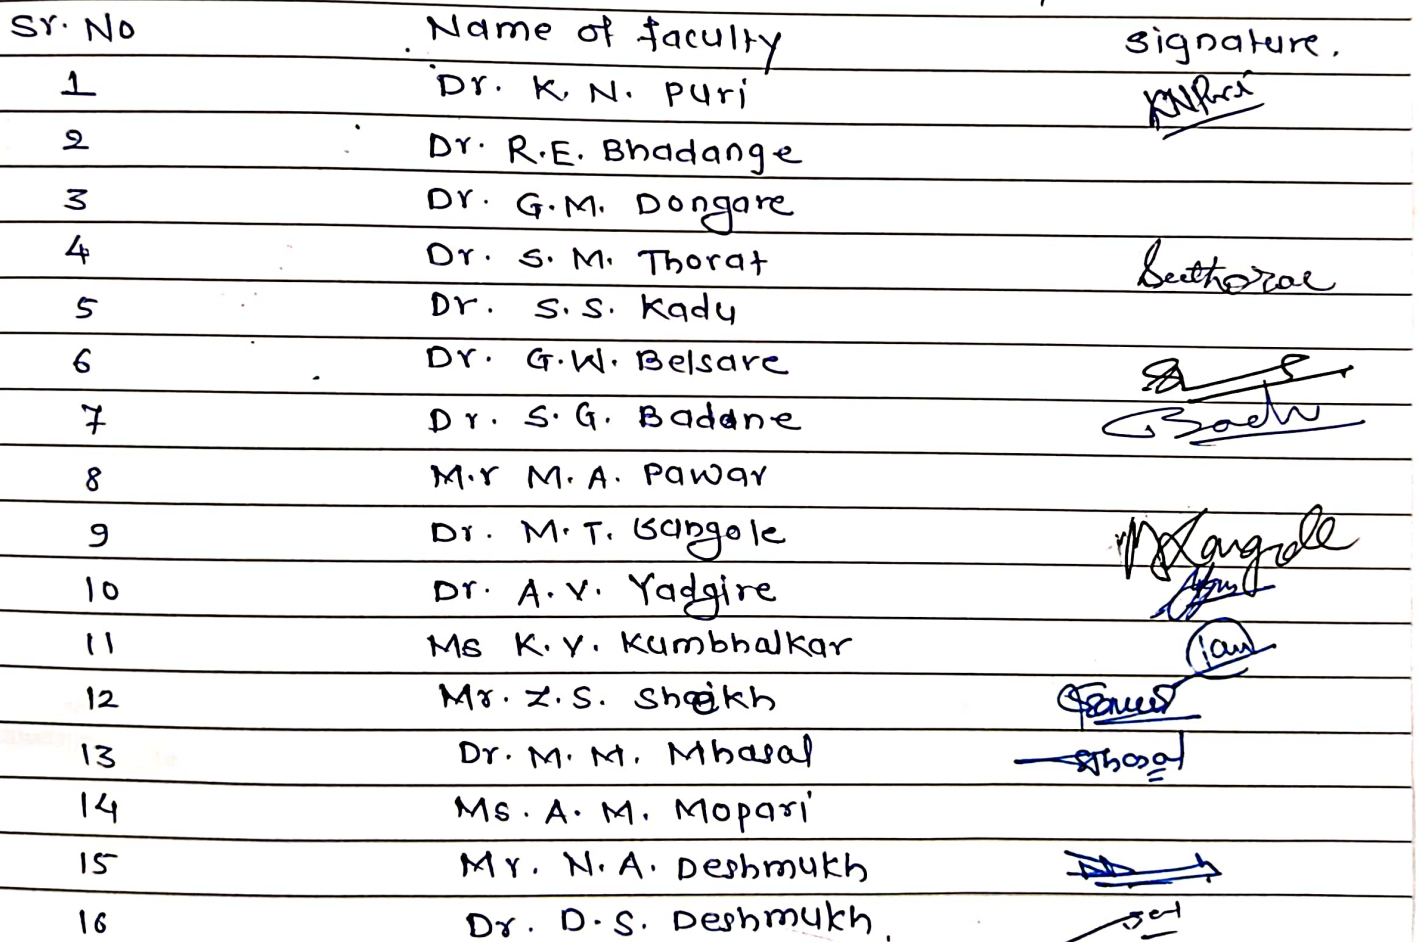 Sr. No Name of faculty signature.
1 Dr. K. N. Puri KNPuri
2 Dr. R.E. Bhadange
3 Dr. G.M. Dongare
4 Dr. S. M. Thorat
5 Dr. S.S. Kadu
6 Dr. G.W. Belsare
7 Dr. S. G. Badane
8 M.r M. A. Pawar
9 Dr. M. T.
10 Dr. A. V. Yadgire
11 Ms K. V. Kumbhalkar
12 Mr. Z. S. Shaikh
13 Dr. M. M. Mhasal
14 Ms. A. M. Mopari
15 Mr. N. A. Deshmukh
16 Dr. D. S. Deshmukh.